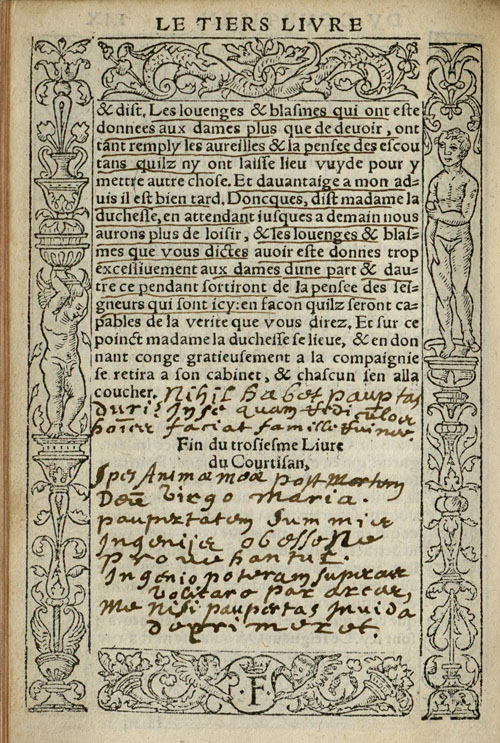 LE TIERS LIVRE
& dist, Les louenges & blasmes qui ont este
donnees aux dames plus que de deuoir, ont
tant remply les aureilles & la pensee des escou
tans quilz ny ont laisse lieu vuyde pour y
mettre autre chose. Et dauantaige a mon ad-
uis il est bien tard. Doncques, dist madame la
duchesse, en attendant iusques a demain nous
aurons plus de loisir, & les louenges & blas-
mes que vous dictes auoir este donnes trop
excessiuement aux dames dune part & dau-
tre ce pendant sortiront de la pensee des sei-
gneurs qui sont icy: en facon quilz seront ca-
pables de la verite que vous direz, Et sur ce
poinct madame la duchesse se lieue, & en don
nant conge gratieusement a la compaignie
se retira a son cabinet, & chascun sen alla
coucher. Nihil habet paupertas
duris In se quam
faciat
Fin du troisiesme Liure
du Courtisan,
Spes Animæ meæ post Mortem
Deū Virgo Maria.
paupertatem summis
Ingeniis obesse Ne
Provehantur.
Ingenio poteram superas
volitare per arces,
Me Nisi paupertas Invida
deprimeret.
P. F.